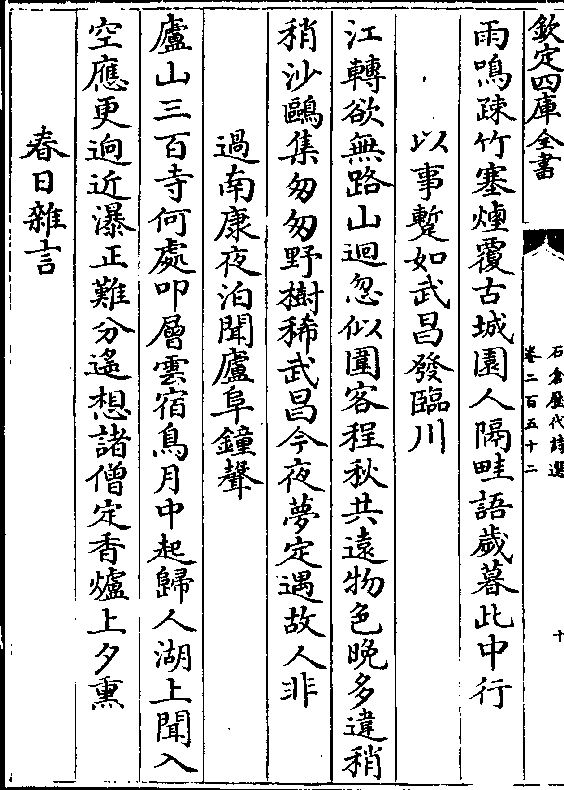 欽定四庫全書
石倉歷代詩選
卷二百五十二
十
雨鳴疎竹塞煙覆古城園人隔畦語歲暮此中行
以事蹔如武昌發臨川
江轉欲無路山迴忽似圍客程秋共遠物色晚多違稍
稍沙鷗集匆匆野樹稀武昌今夜夢定遇故人非
過南康夜泊聞廬阜鐘聲
廬山三百寺何處叩層雲宿鳥月中起歸人湖上聞入
空應更逈近瀑正難分遙想諸僧定香爐上夕熏
春日雜言